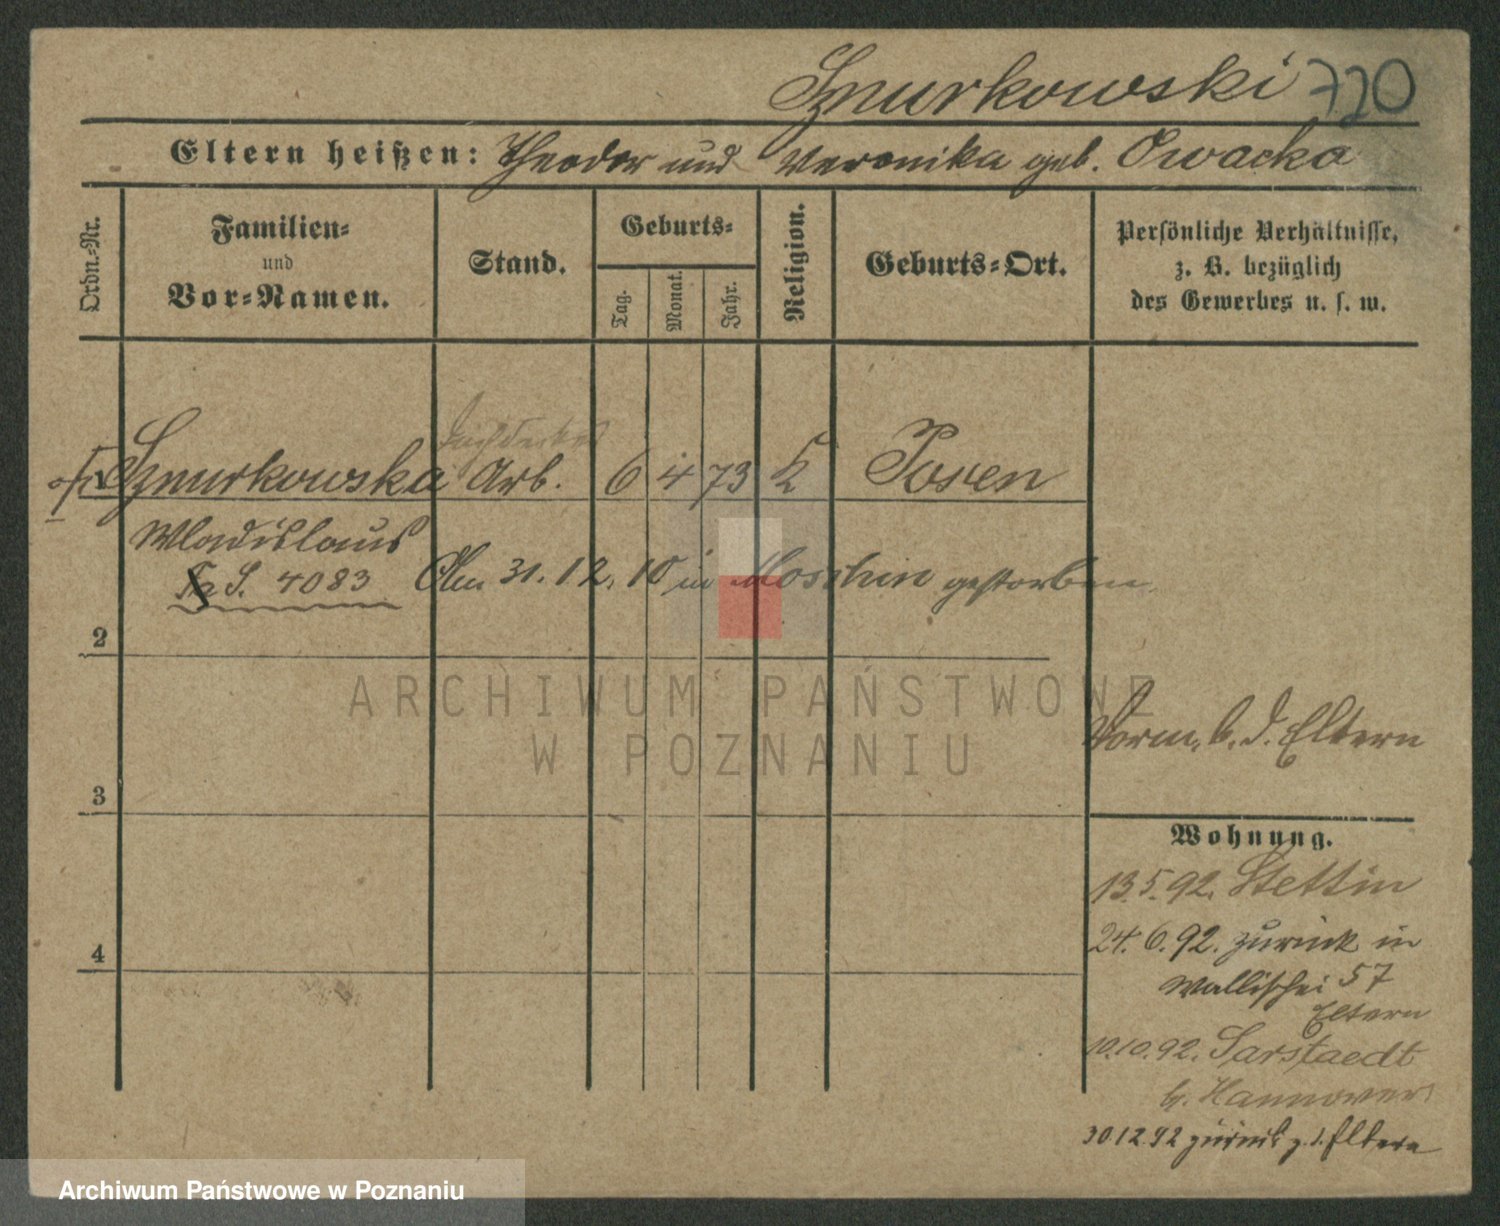 Sznurkowski 720
Eltern heißen: Theodor und Veronika geb. Owacka
Ordn.-Nr.
Familien-
und
Vor-Namen.
Stand.
Geburts-
Tag.
Monat.
Jahr.
Religion.
Geburts-Ort.
Persönliche Verhältnisse,
z. B. bezüglich
des Gewerbes u. s. w.
Sznurkowska Arb. 6 4 73 K Posen
Wladislaus
S. 4083 Am 31.12.10 in Moschin gestorben
2
ARCHIWUM PAŃSTWOWE
W POZNANIU
Vorm. b. d. Eltern
3
Wohnung.
13.5.92. Stettin
24.6.92. zurück in
Wallischei 57
Eltern
4
10.10.92. Sarstaedt
b. Hannover
30.12.92 zurück z. d. Eltern
Archiwum Państwowe w Poznaniu